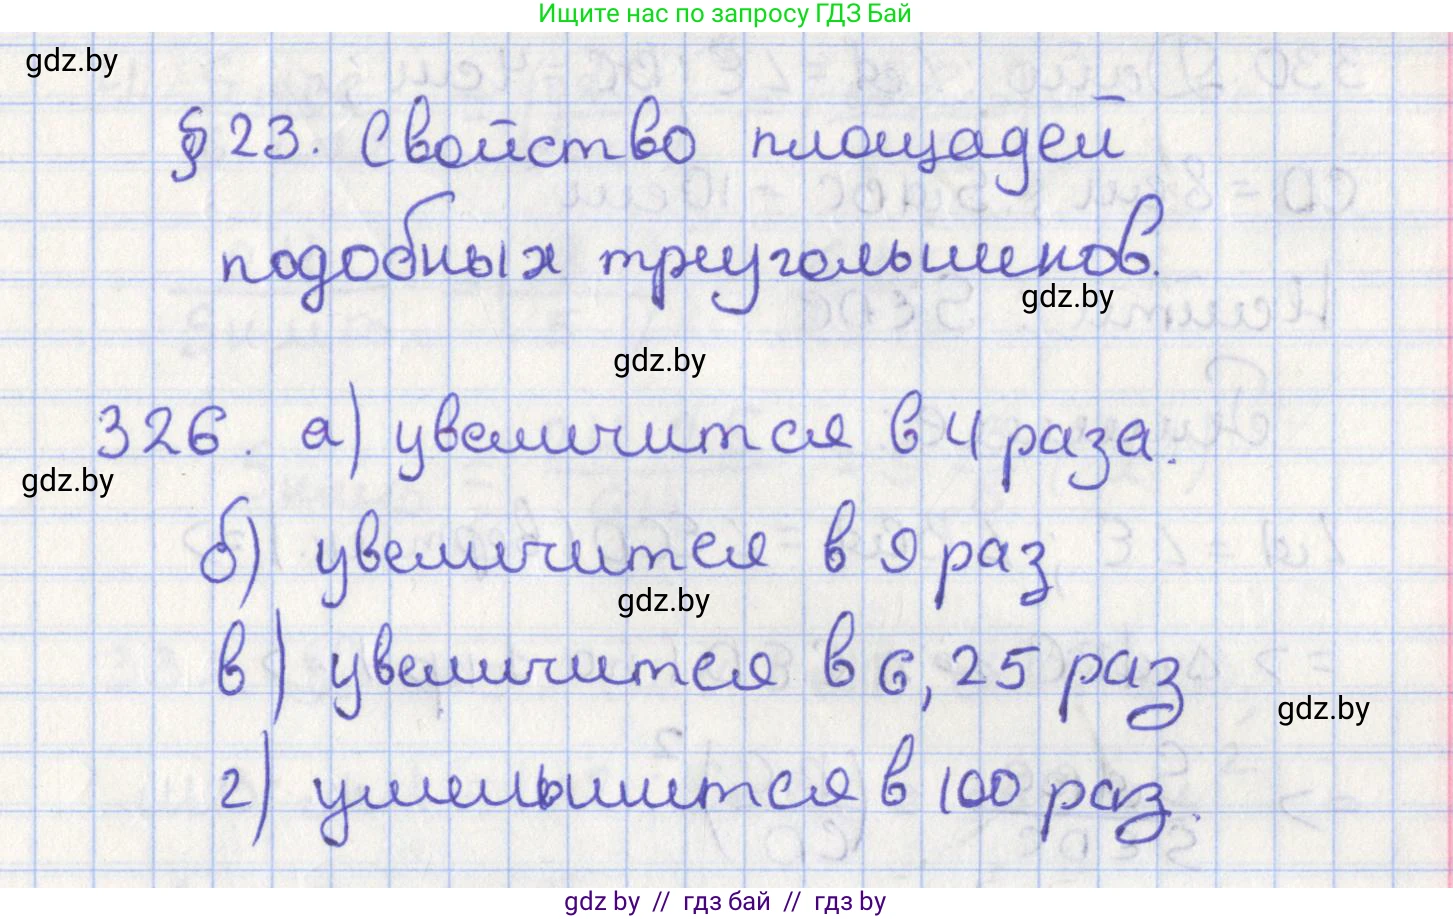 Ищите нас по запросу ГДЗ Бай
gdz.by
§ 23. Свойство площадей
подобных треугольников.
gdz.by
gdz.by
326. а) увеличится в 4 раза.
gdz.by
б) увеличится в 9 раз
gdz.by
в) увеличится в 6,25 раз
gdz.by
г) уменьшится в 100 раз.
gdz.by // гдз бай // гдз by